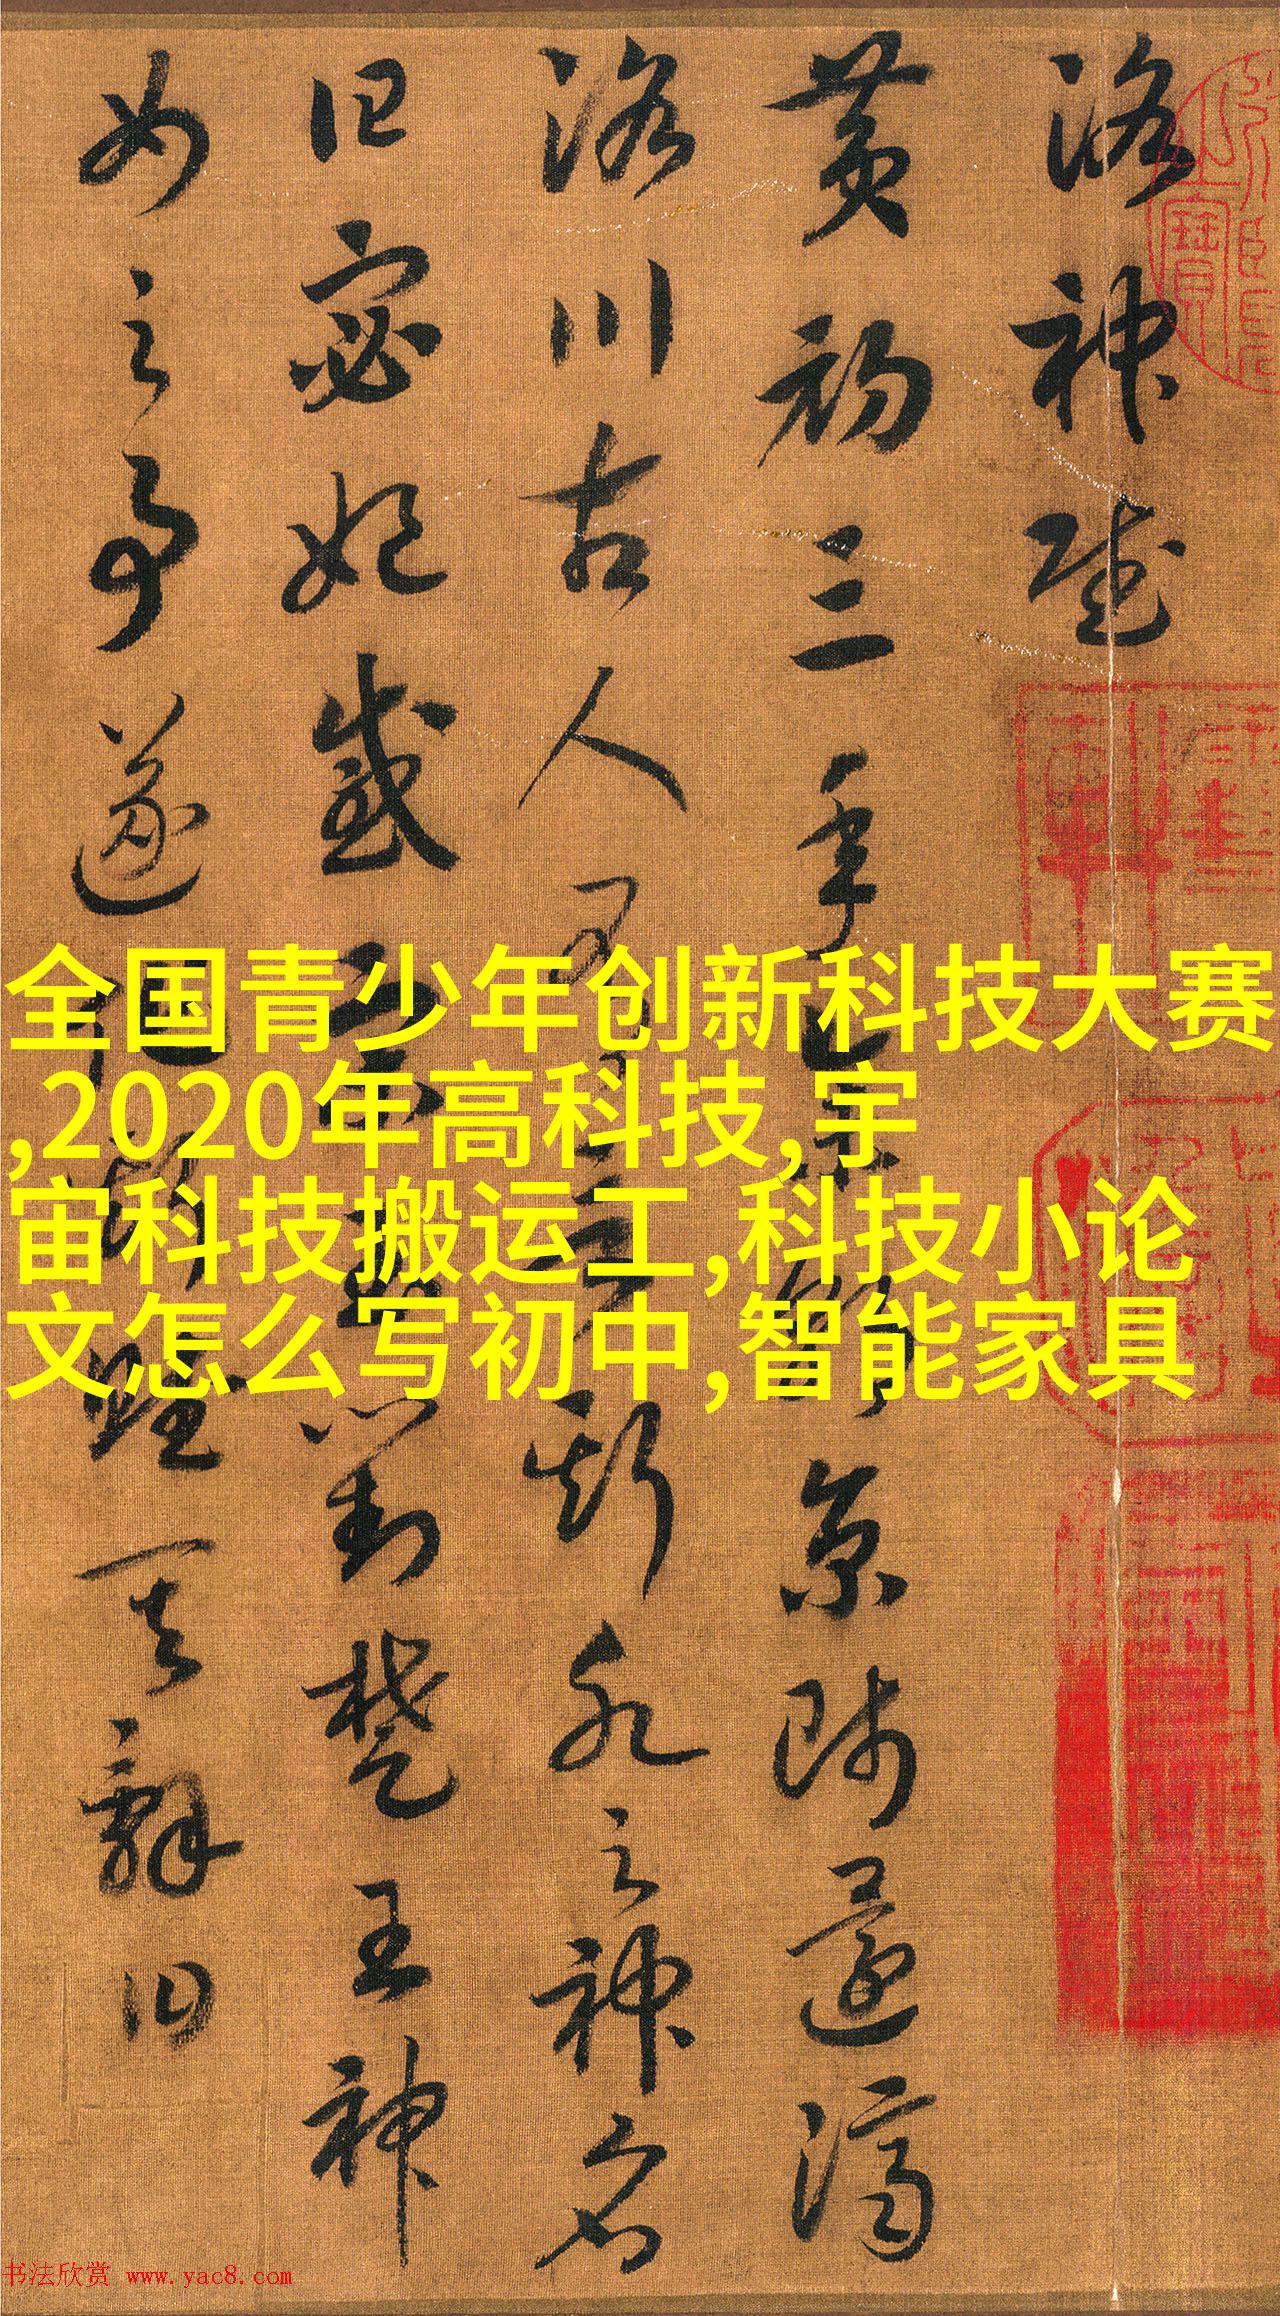 洛神賦
黃初三年余朝京師還濟
洛川古人有言斯水之神名
曰宓妃感宋玉對楚王神
女之事遂作斯賦其辭曰
全国青少年创新科技大赛
,2020年高科技,宇
宙科技搬运工,科技小论
文怎么写初中,智能家具
书法欣赏 www.yac8.com